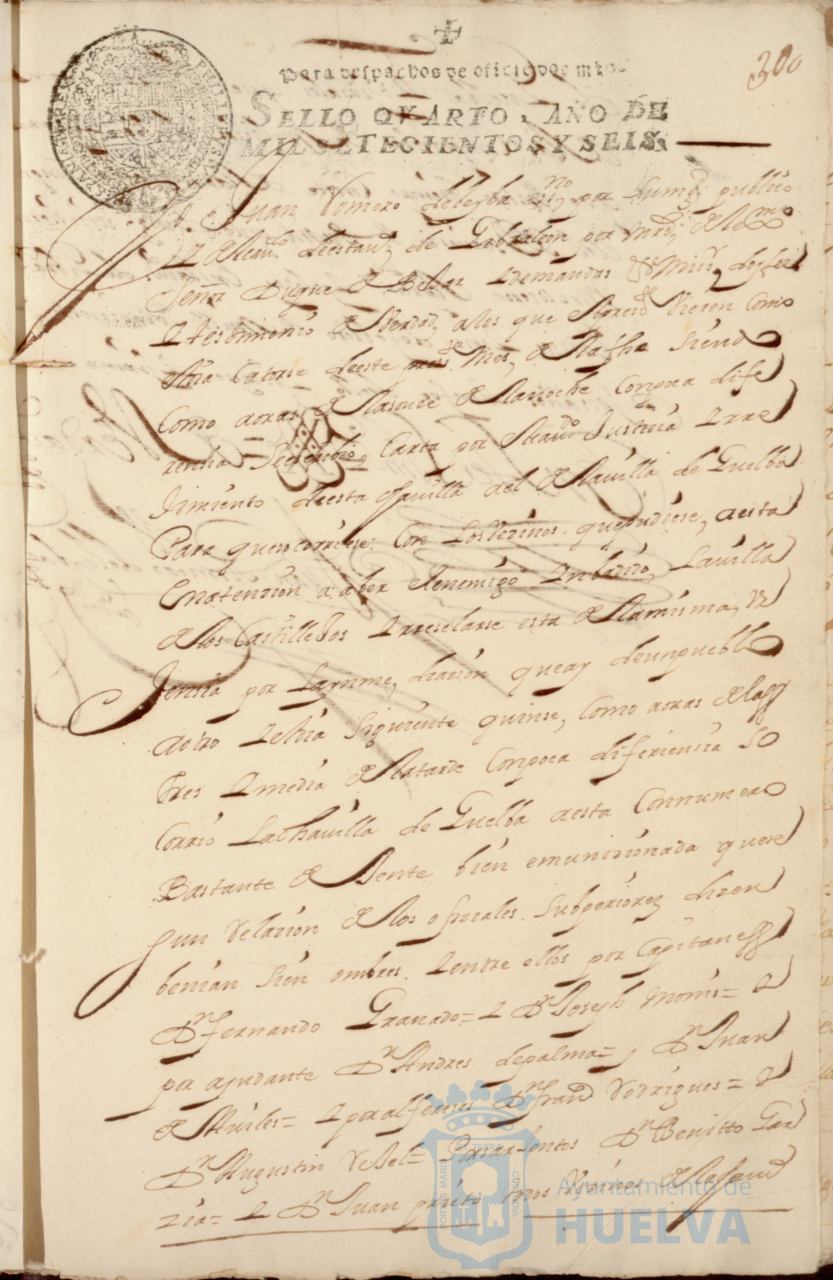 300
Para despachos de oficio dos mrs
SELLO QVARTO, AÑO DE
MIL SETECIENTOS Y SEIS.
Yo Juan Romero deleyba essno por su mg. publico
Y de Cauo. deesta uª de Gibraleon por mrd de el exmo
Señor Duque de Bejar Y demandas Doifee
Y testimonio de Verdad, alos que el preste Vieren Como
oi dia Catorse deeste press.te Mes, de la fha Siendo
Como aoras de las onse de la noche Conpoca dife
rensia Se Carta por el cauo. Justicia Y rre
Jimiento deesta dha uilla ael de la uilla de Guelba
Para que socorriese Con Losvezinos que pudiese, aesta
Enatenzion a aber el enemigo Ynbadido, La uilla
de los Castillejos Y rreselarse esta de la misma, ve
Jensia por La ynmediazion que ay deunpueblo
aotro Y el dia Siguiente quinse, Como aoras de las
tres Y media de la tarde Conpoca diferiensia So
Corrio La dha uilla de Guelba aesta Connumero
Bastante de Jente bien emunizionada quese
gun Relazion de los ofiziales Subperiores dizen
benian Sien ombres. Y entre ellos por Capitanes
Dn fernando Granado= Y Dn Joseph Monis= Y
por ayudante Dn Andres depalma= y Dn Juan
de Abiles= Y por alfereses Dn franco Rodrigues= Y
Dn Augustin Velel= Porsarxentos Dn Benitto Gar
zia= Y Dn Juan prieto todos Vezinos de la dha uª
Ayuntamiento de
HUELVA